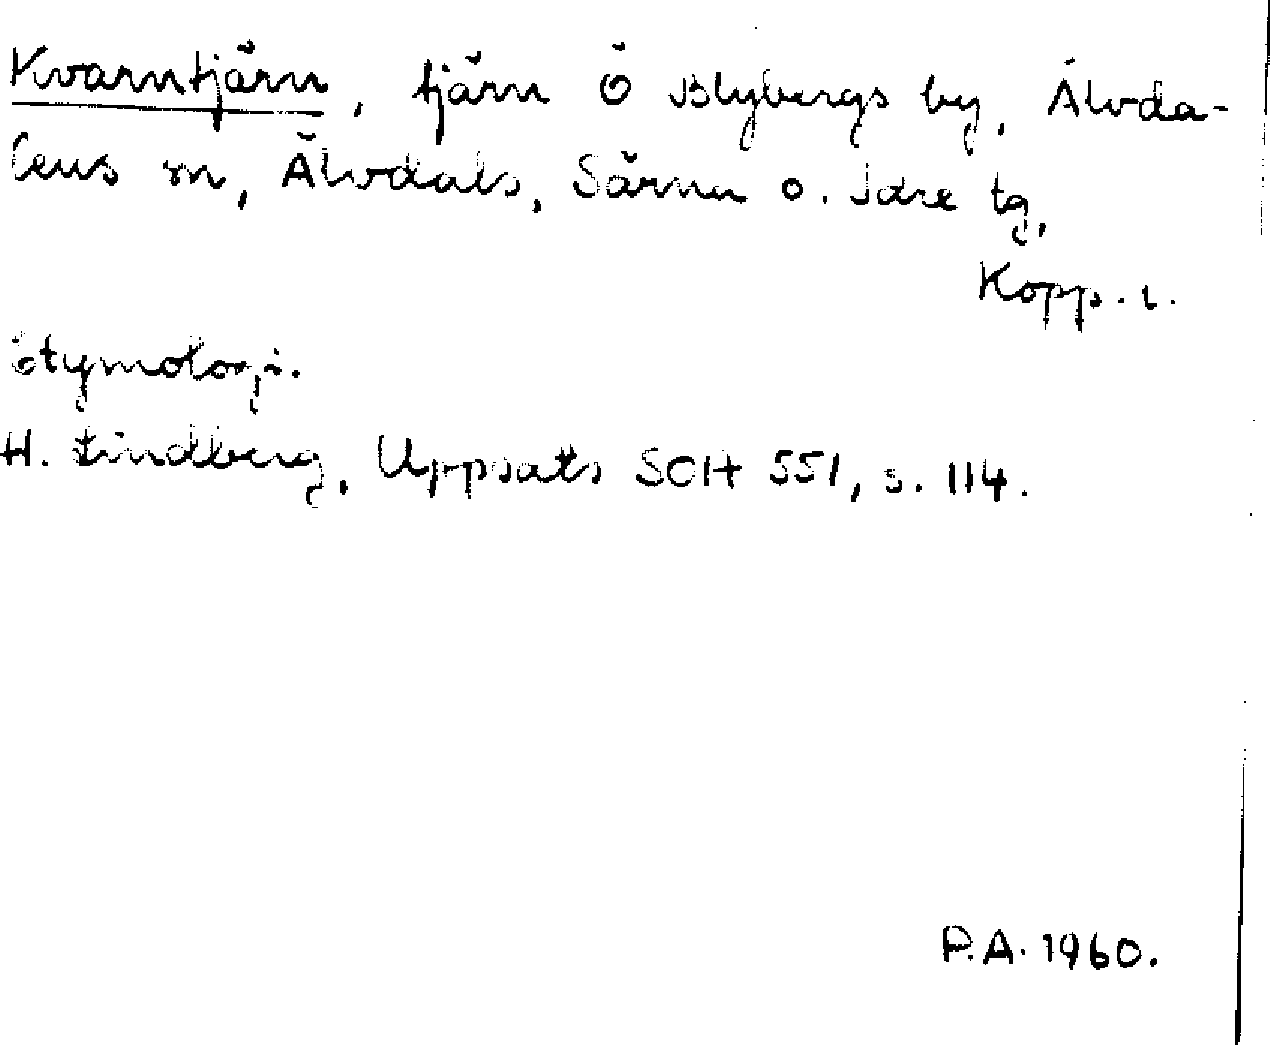 Kvarntjärn, tjärn Ö Blybergs by, Älvda-
lens sn, Älvdals, Särna o. Idre tg,
Kopp. l.
Etymologi.
H. Lindberg, Uppsats SOH 551, s. 114.
P.A. 1960.